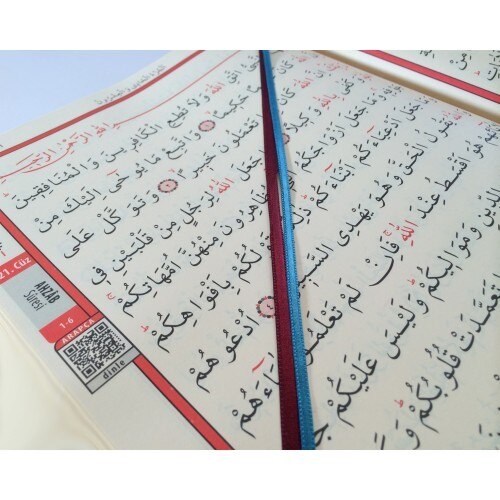 الرَّحْمٰنِ الرَّحِيمِ
اتَّقِ اللّٰهَ وَلَا تُطِعِ الْكَافِرِينَ وَالْمُنَافِقِينَ
حَكِيمًا ۝ وَاتَّبِعْ مَا يُوحٰى اِلَيْكَ مِنْ
كَانَ تَعْمَلُونَ خَبِيرًا ۝ وَتَوَكَّلْ عَلَى
وَكَفٰى بِاللّٰهِ وَكِيلًا جَعَلَ اللّٰهُ لِرَجُلٍ مِنْ قَلْبَيْنِ فِي
وَمَا جَعَلَ اَزْوَاجَكُمُ تُظَاهِرُونَ مِنْهُنَّ اُمَّهَاتِكُمْ
جَعَلَ اَدْعِيَاءَكُمْ اَبْنَاءَكُمْ قَوْلُكُمْ بِاَفْوَاهِكُمْ
يَقُولُ الْحَقَّ وَهُوَ يَهْدِي السَّبِيلَ ۝٤ اُدْعُوهُمْ
هُوَ اَقْسَطُ عِنْدَ اللّٰهِ فَاِنْ لَمْ تَعْلَمُوا اٰبَاءَهُمْ
الدِّينِ وَمَوَالِيكُمْ وَلَيْسَ عَلَيْكُمْ
تَعَمَّدَتْ قُلُوبُكُمْ
21. Cüz
AHZÂB
Sûresi
1-6
ARAPÇA
dinle